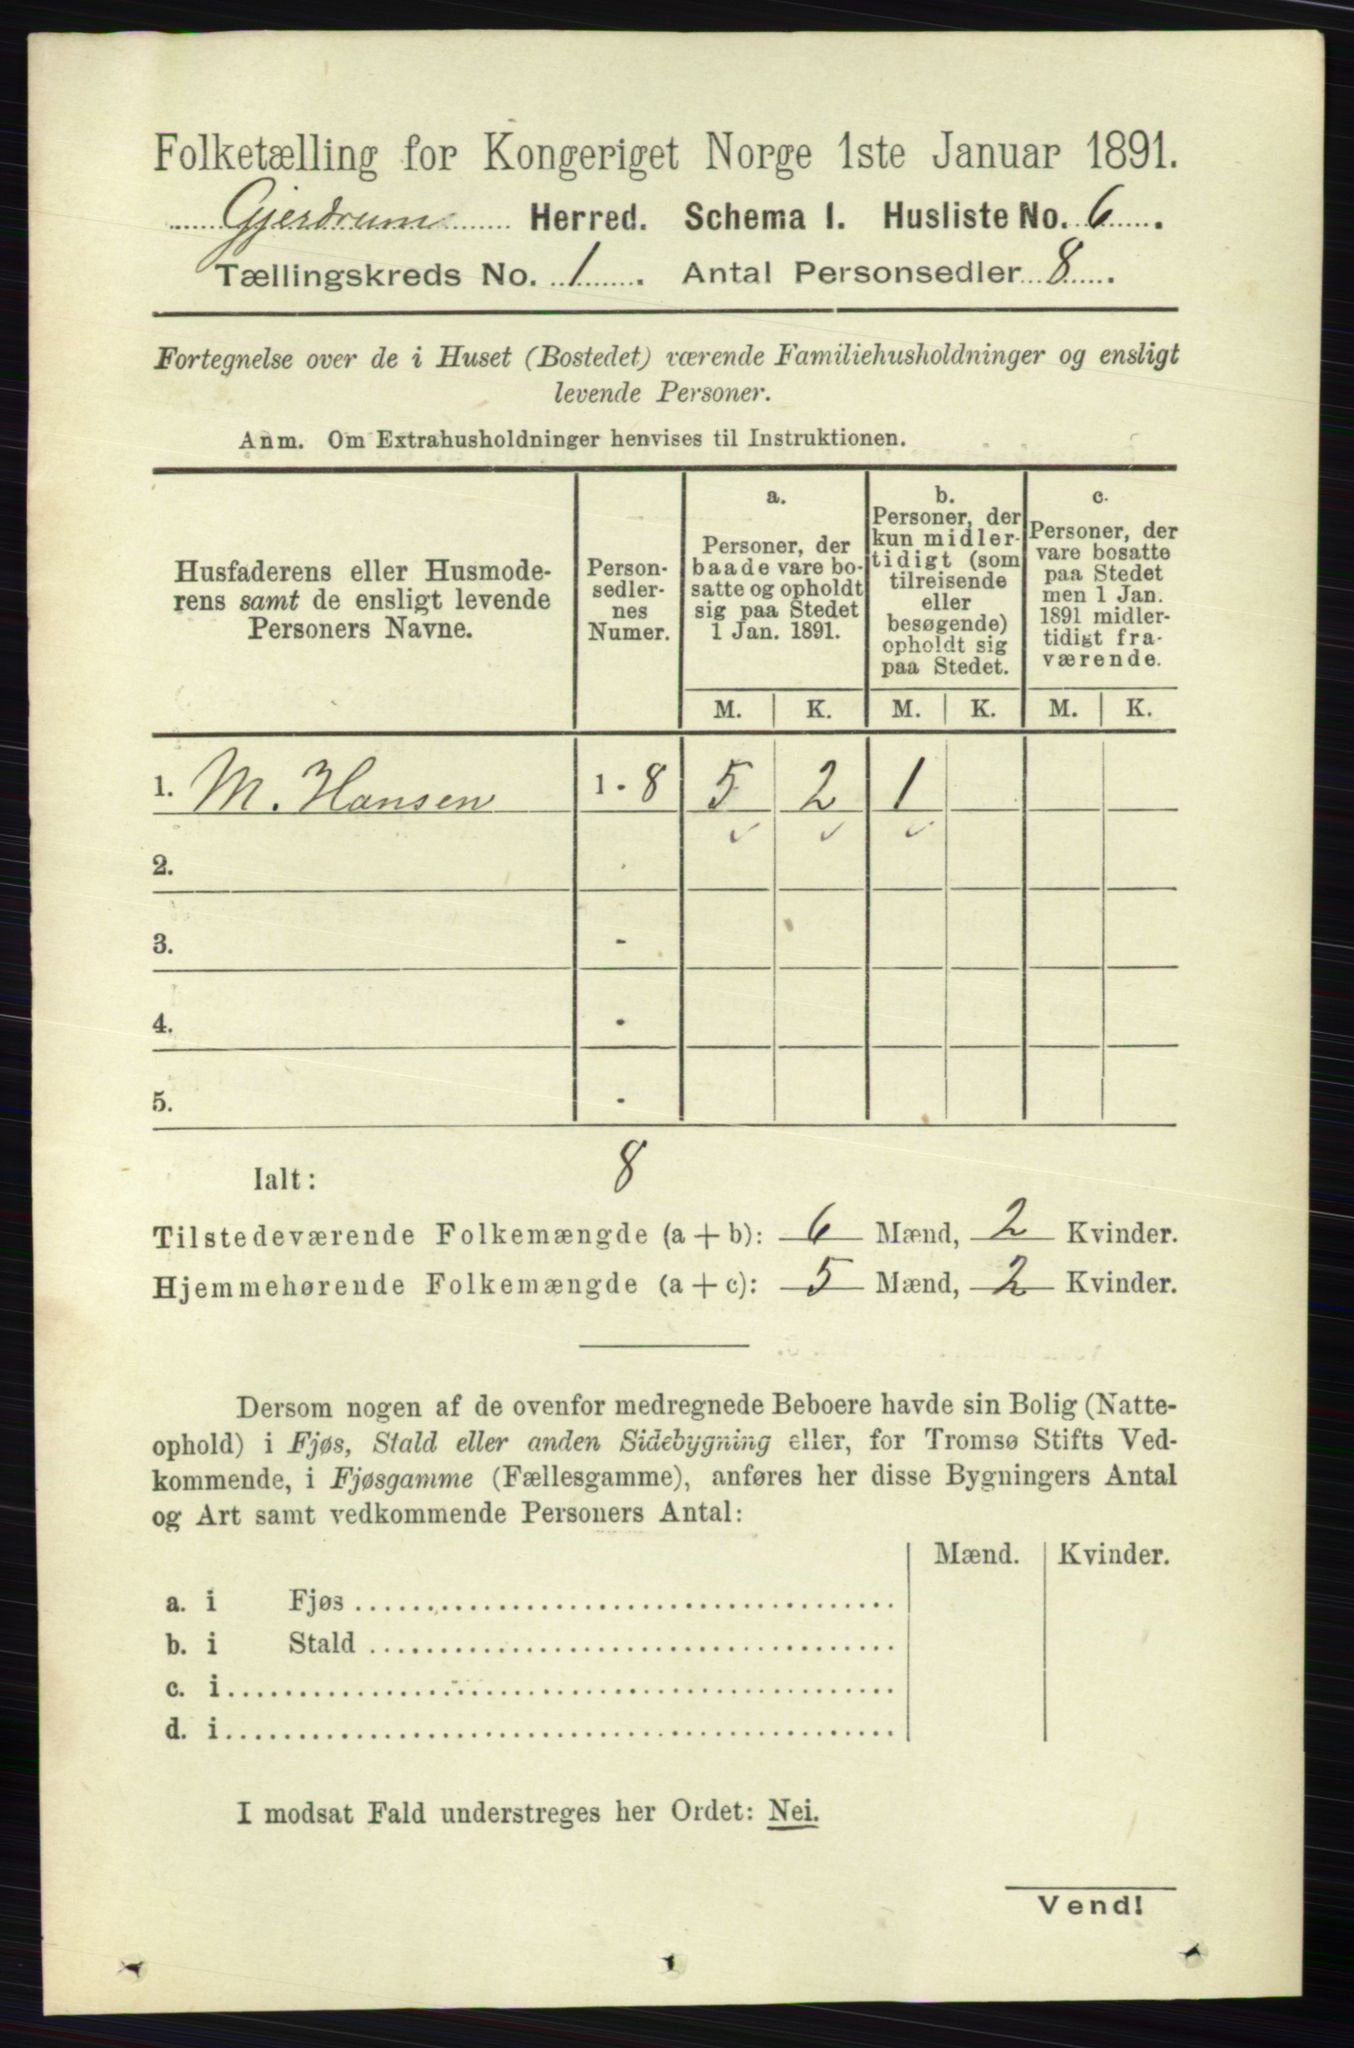 Folketælling for Kongeriget Norge 1ste Januar 1891.
Gjerdrum Herred. Schema I. Husliste No. 6.
Tællingskreds No. 1. Antal Personsedler 8.
Fortegnelse over de i Huset (Bostedet) værende Familiehusholdninger og ensligt
levende Personer.
Anm. Om Extrahusholdninger henvises til Instruktionen.
Husfaderens eller Husmode-
rens samt de ensligt levende
Personers Navne.
Person-
sedler-
nes
Numer.
a.
Personer, der
baade vare bo-
satte og opholdt
sig paa Stedet
1 Jan. 1891.
b.
Personer, der
kun midler-
tidigt (som
tilreisende
eller
besøgende)
opholdt sig
paa Stedet.
c.
Personer, der
vare bosatte
paa Stedet
men 1 Jan.
1891 midler-
tidigt fra-
værende.
M. K. M. K. M. K.
1. M. Hansen 1 - 8 5 2 1
2.
3. -
4. -
5. -
Ialt: 8
Tilstedeværende Folkemængde (a + b): 6 Mænd, 2 Kvinder.
Hjemmehørende Folkemængde (a + c): 5 Mænd, 2 Kvinder.
Dersom nogen af de ovenfor medregnede Beboere havde sin Bolig (Natte-
ophold) i Fjøs, Stald eller anden Sidebygning eller, for Tromsø Stifts Ved-
kommende, i Fjøsgamme (Fællesgamme), anføres her disse Bygningers Antal
og Art samt vedkommende Personers Antal:
Mænd. Kvinder.
a. i Fjøs
b. i Stald
c. i
d. i
I modsat Fald understreges her Ordet: Nei.
Vend!